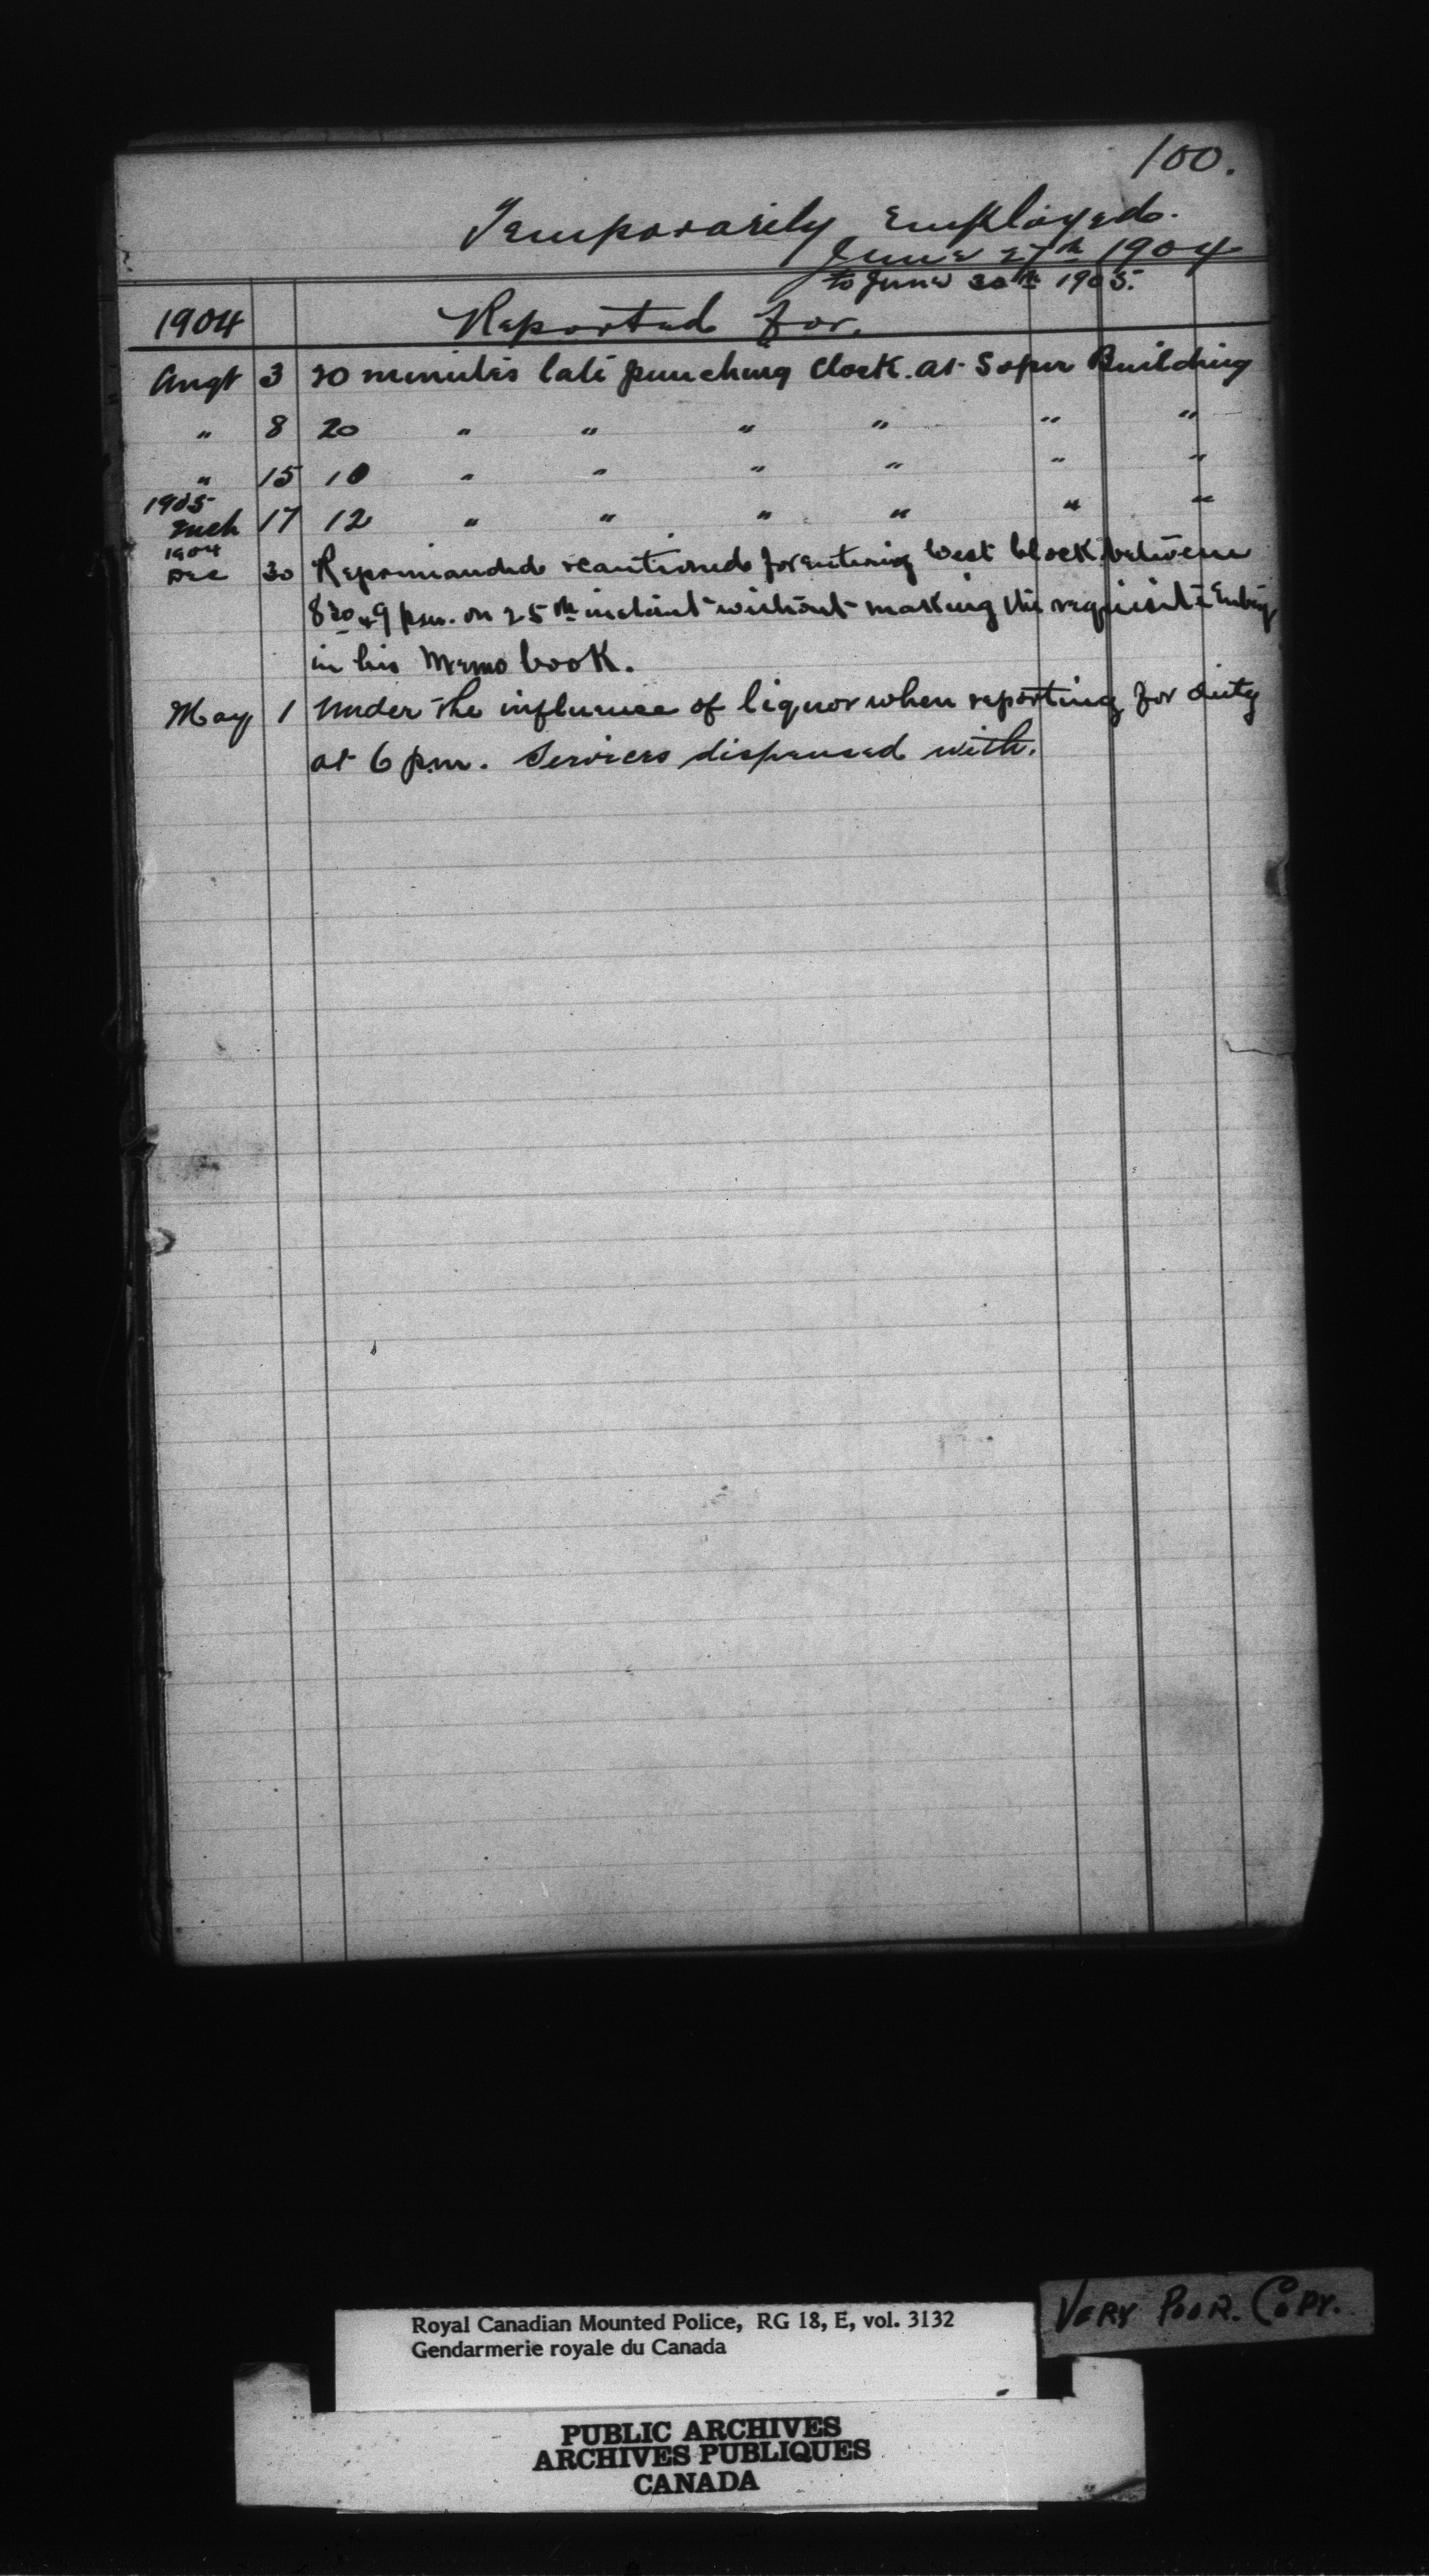 100.
Temporarily Employed.
June 27th 1904
to June 30th 1905.
1904 Reported for.
Augt 3 20 minutes late punching Clock. at Soper Building
" 8 20 " " " " " "
" 15 10 " " " " " "
1905
Mch 17 12 " " " " " "
1904
Dec 30 Reprimanded & cautioned for entering West block between
8 30 & 9 p.m. on 25th instant without making the requisite Entry
in his Memo book.
May 1 Under the influence of liquor when reporting for duty
at 6 p.m. Services dispensed with.
Royal Canadian Mounted Police, RG 18, E, vol. 3132
Gendarmerie royale du Canada
VERY POOR. COPY.
PUBLIC ARCHIVES
ARCHIVES PUBLIQUES
CANADA